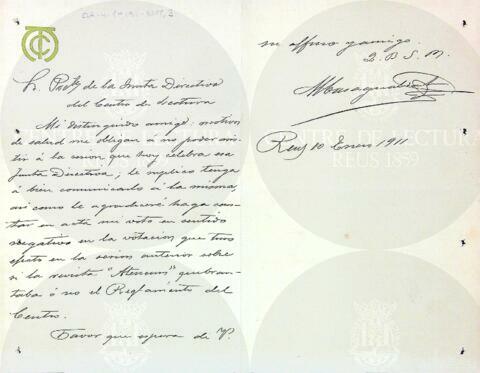 Sr. Pte. de la Junta Directiva
del Centro de Lectura
Mi distinguido amigo: motivos
de salud me obligan á no poder asis-
tir á la sesion que hoy celebra esa
Junta Directiva; le suplico tenga
á bien comunicarlo á la misma,
asi como le agradeceré haga cons-
tar en acta mi voto en sentido
negativo en la votacion que tuvo
efecto en la sesion anterior sobre
si la revista "Ateneum" quebran-
taba ó no el Reglamento del
Centro.
Favor que espera de V.
su affmo y amigo
Q. B. S. M.
Reus 10 Enero 1911
CENTRE DE LECTURA
REUS 1859